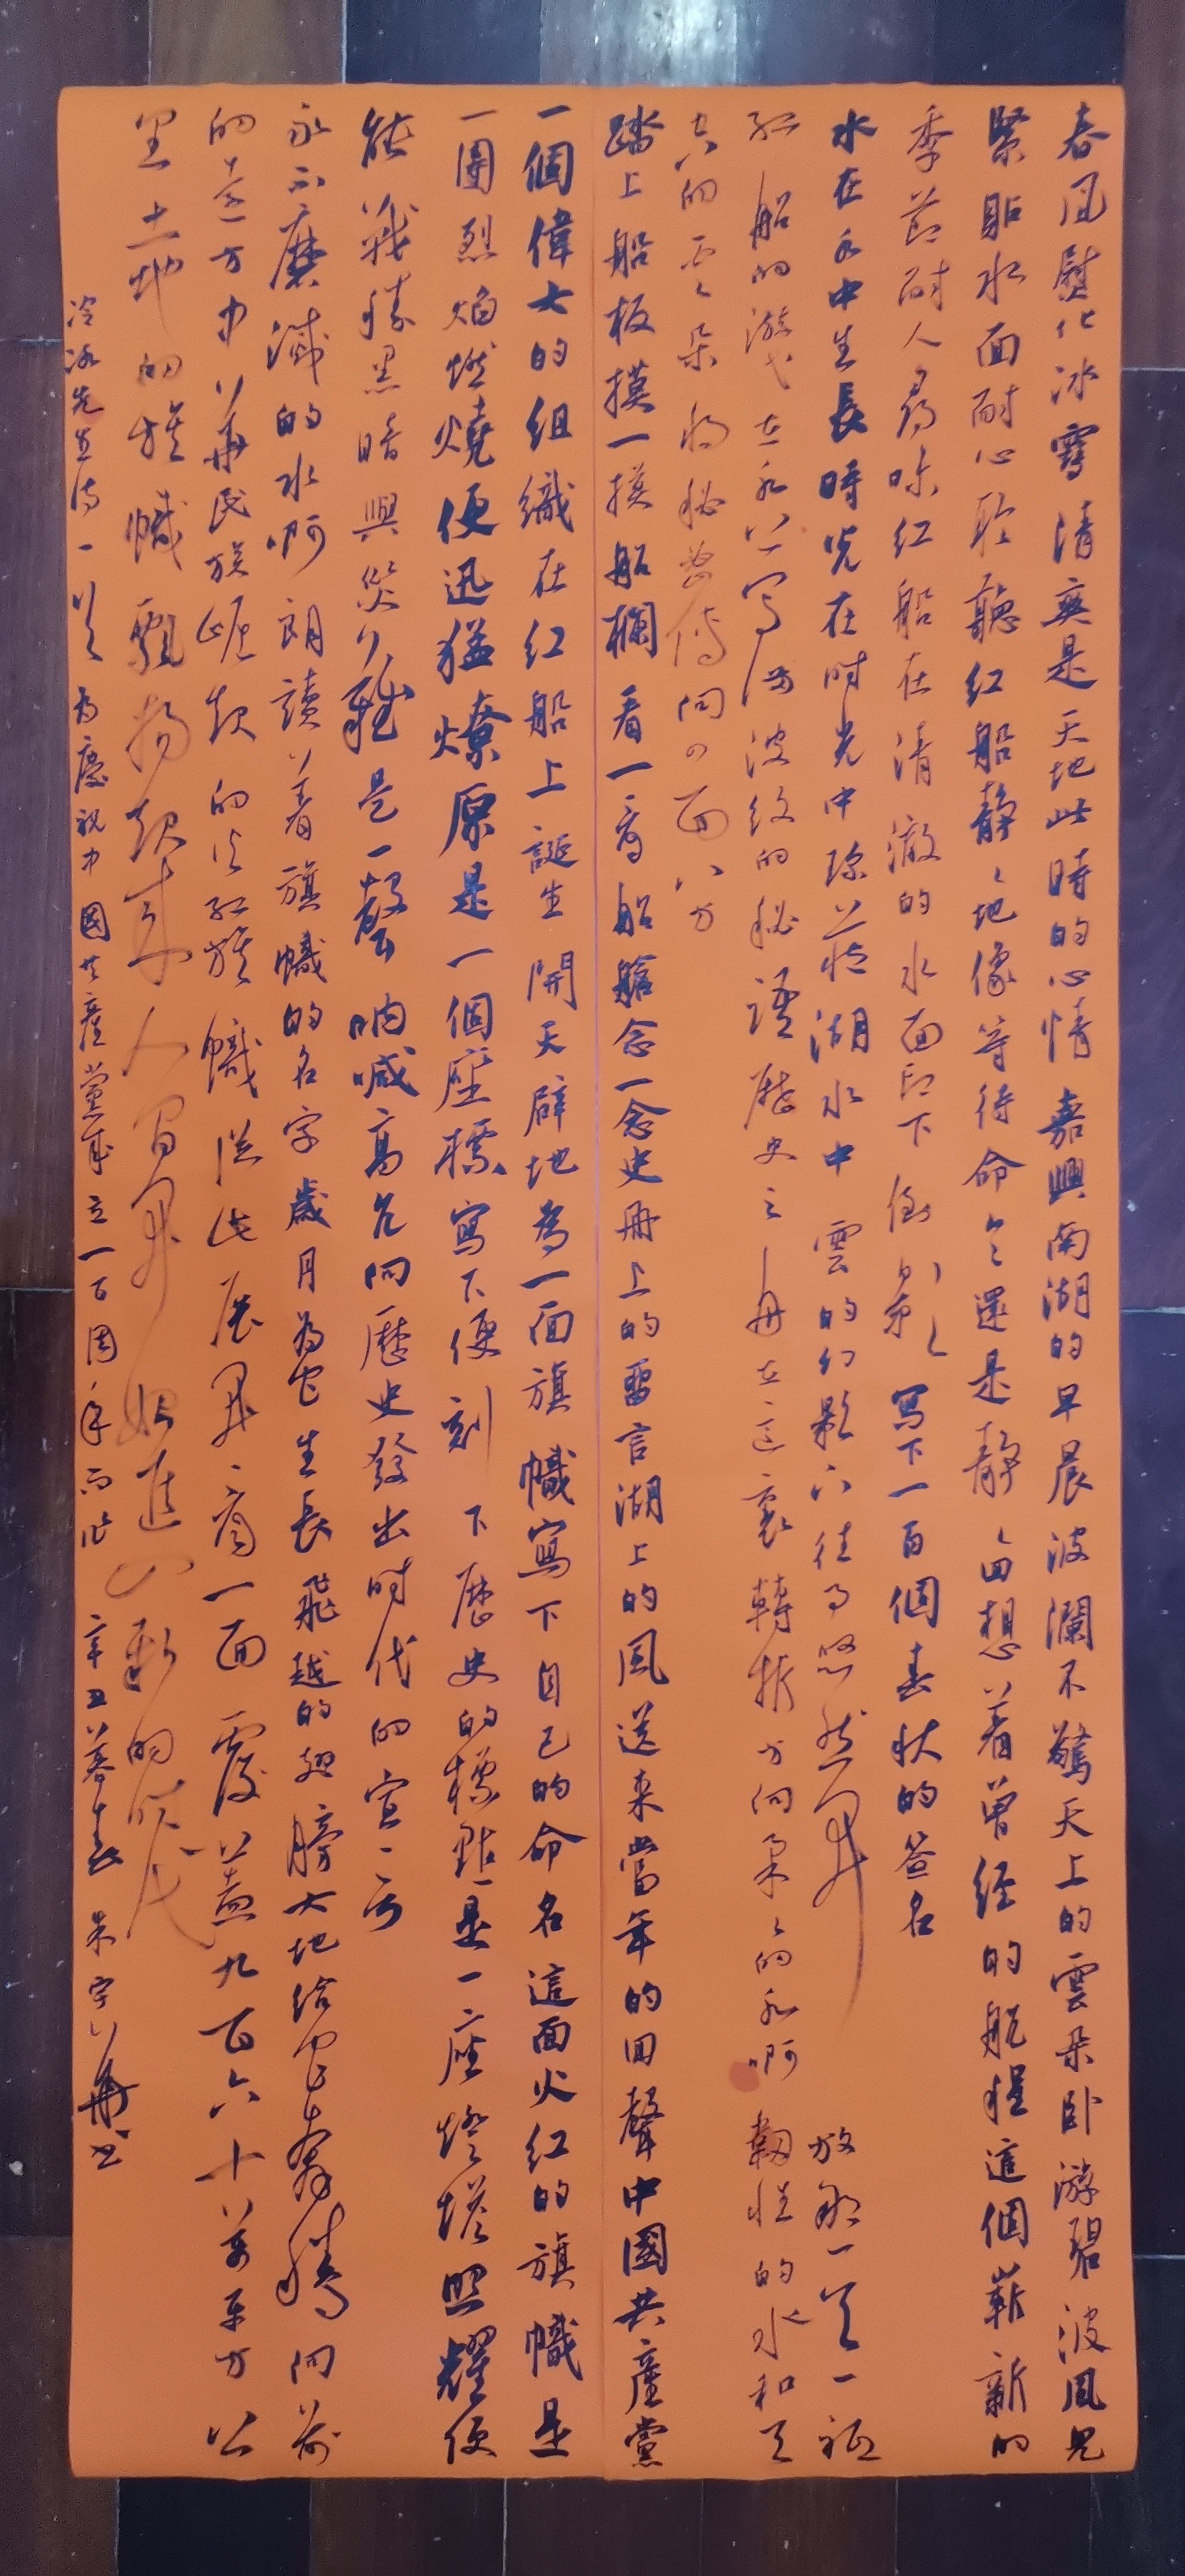 春風熨化冰雪清爽是天地此時的心情嘉興南湖的早晨波瀾不驚天上的雲朵卧游碧波風兒
緊貼水面耐心聆聽紅船靜靜地像等待命令還是靜靜回想着曾經的航程這個嶄新的
季節耐人尋味紅船在清澈的水面印下倒影寫下一百個春秋的簽名
水在水中生長時光在时光中珍藏湖水中雲的幻影六往事悠然開放每一笑一
紅船的游弋在水上寫满波纹的秘語歷史之舟在這裏轉折方向柔柔的水啊韌性的水和天
空的雲朵将秘密傳向四面八方
踏上船板摸一摸船欄看一看船艙念一念史冊上的留言湖上的風送来當年的回聲中國共產黨
一個偉大的组織在红船上誕生開天辟地為一面旗幟寫下自己的命名這面火红的旗幟是
一團烈焰燃燒便迅猛燎原是一個座標寫下便刻下歷史的標點是一座燈塔照耀便
能戰勝黑暗與災難是一聲呐喊高亢向歷史發出时代的宣言
永不磨滅的水啊朗讀着旗幟的名字歲月為它生長飛越的翅膀大地給它奔騰向前
的遠方中華民族崛起的火红旗幟從此展開高高一面覆蓋九百六十萬平方公
里土地的旗幟飄揚起来人間開始進入新的时代
冷冰先生詩一首為慶祝中國共產黨成立一百周年而作辛丑暮春朱宇華书